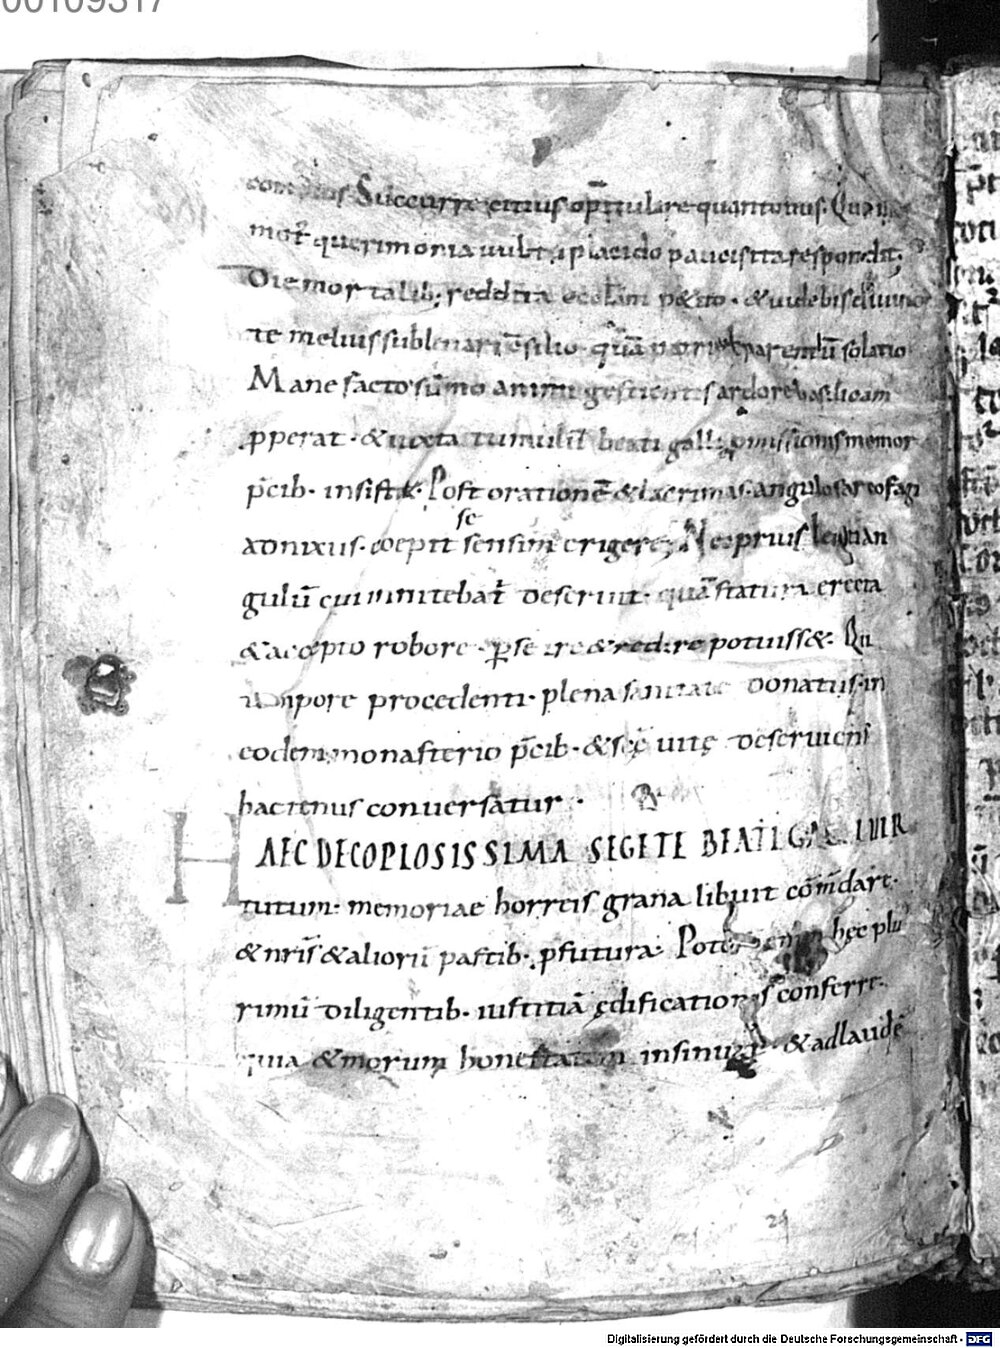 00109317
Succurre citius op̄itulare quantotius. Quā
mox̄ querimonia uult placido pauca ista respondit.
mortalib; reddita &uidebis diuini
te melius sublunari c̄silio quā parentū solatio
Mane facto sūmo animi gestientis ardore basilicam
ꝓperat · &iuxta tumulū beati galli ꝓmissionis memor
p̄cib· insist& · Post orationē &lacrimas · angulos arcofagi
adnixus · coepit se sensim erigere; Nec prius
gulū cui innitebat̄ deseruit · quā statura erecta
&accepto robore · ꝑse ire &redire potuiss& · Qui
procedenti · plena sanitate donatus · in
eodem monasterio p̄cib· &scę uitę deseruiens
hactenus conuersatur ·
HAEC DE COPIOSISSIMA SEGETE BEATI GALLI UIR
tutum · memoriae horreis grana libuit cōmdare ·
&nr̄is &aliorū partib· ꝓfutura · Poterunt enim hęc plu
rimū diligentib· iustitiā ędificationis conferre ·
quia &morum honestatem insinuant · &adlaudē
29
Digitalisierung gefördert durch die Deutsche Forschungsgemeinschaft - DFG